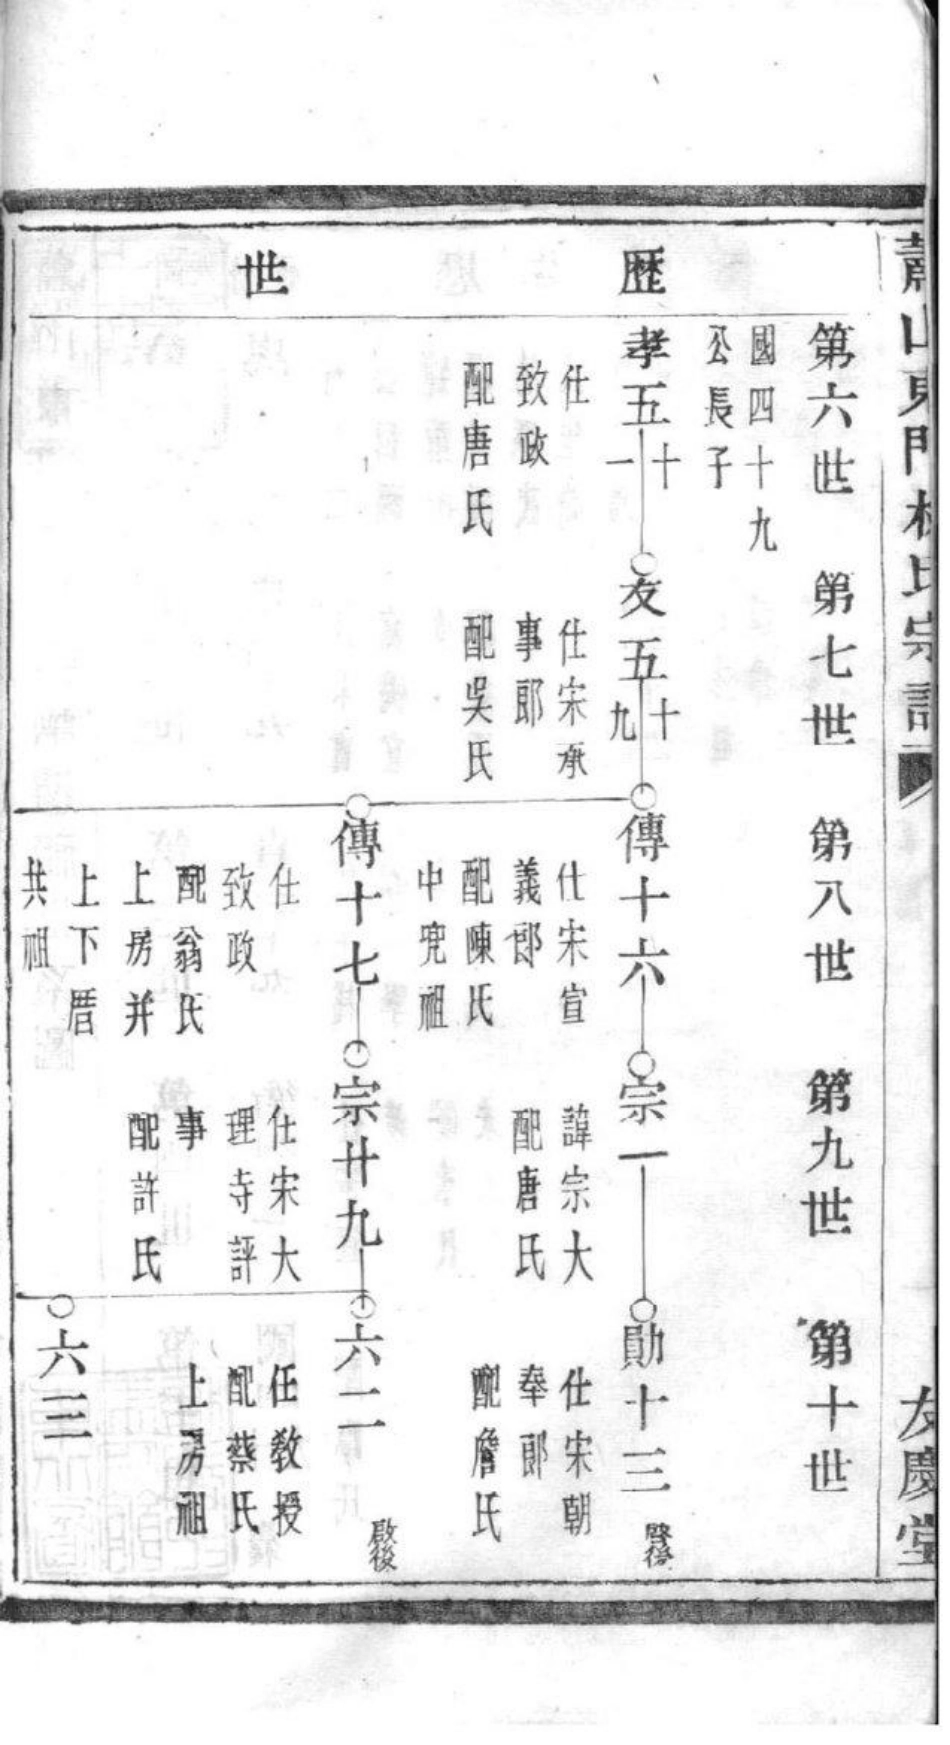 蕭山東門林氏宗譜
友慶堂
歷
世
第六世 第七世 第八世 第九世 第十世
國四十九
公長子
孝五十一
仕
致政
配唐氏
友五十九
仕宋承
事郎
配吳氏
傳十六
仕宋宣
義郎
配陳氏
中兜祖
宗一
諱宗大
配唐氏
勛十三
仕宋朝
奉郎
配詹氏
啟後
傳十七
仕
致政
配翁氏
上房并
上下厝
共祖
宗廿九
仕宋大
理寺評
事
配許氏
六二
任教授
配蔡氏
上房祖
啟後
六三